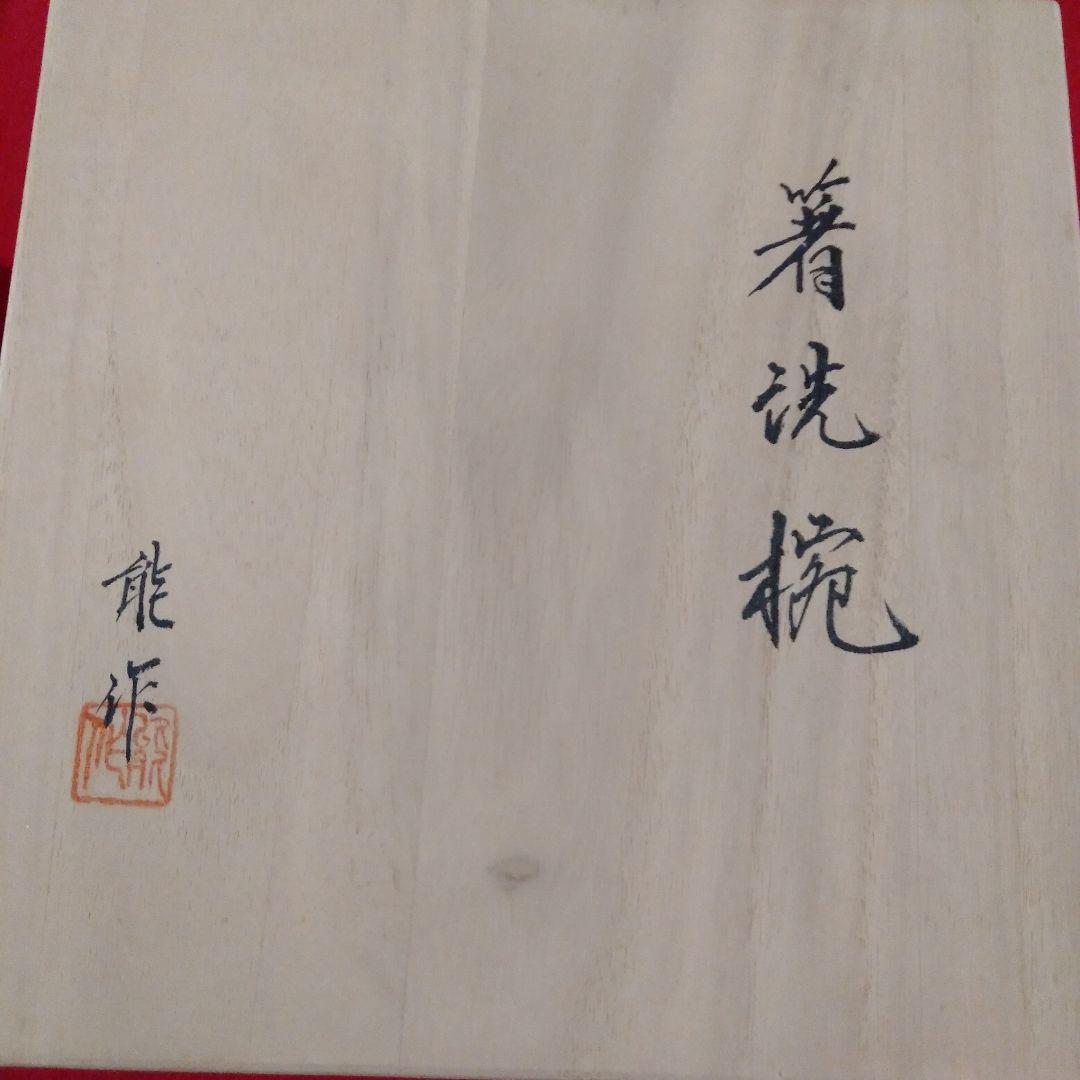 箸洗椀
能作